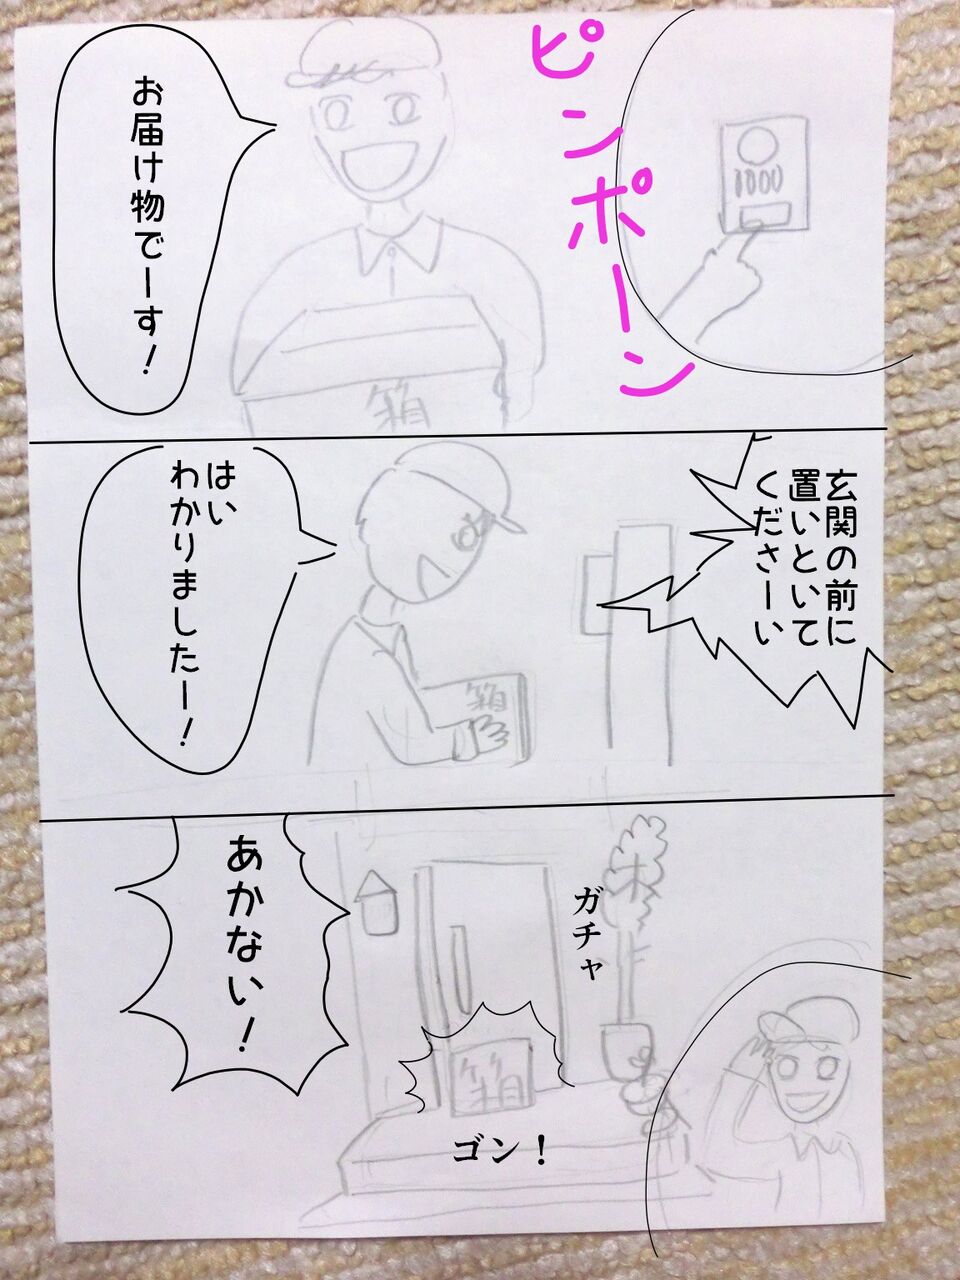 ピンポーン
お届け物でーす！
箱
玄関の前に
置いといて
くださーい
はい
わかりましたー！
箱
ガチャ
あかない！
箱
ゴン！